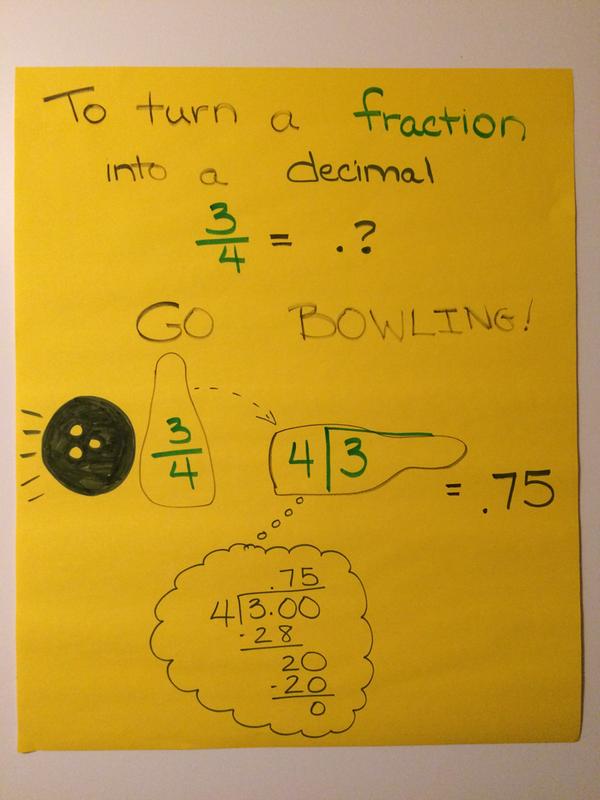 To turn a fraction
into a decimal
3/4 = .?
GO BOWLING!
3/4
4)3 = .75
.75
4)3.00
-28
20
-20
0